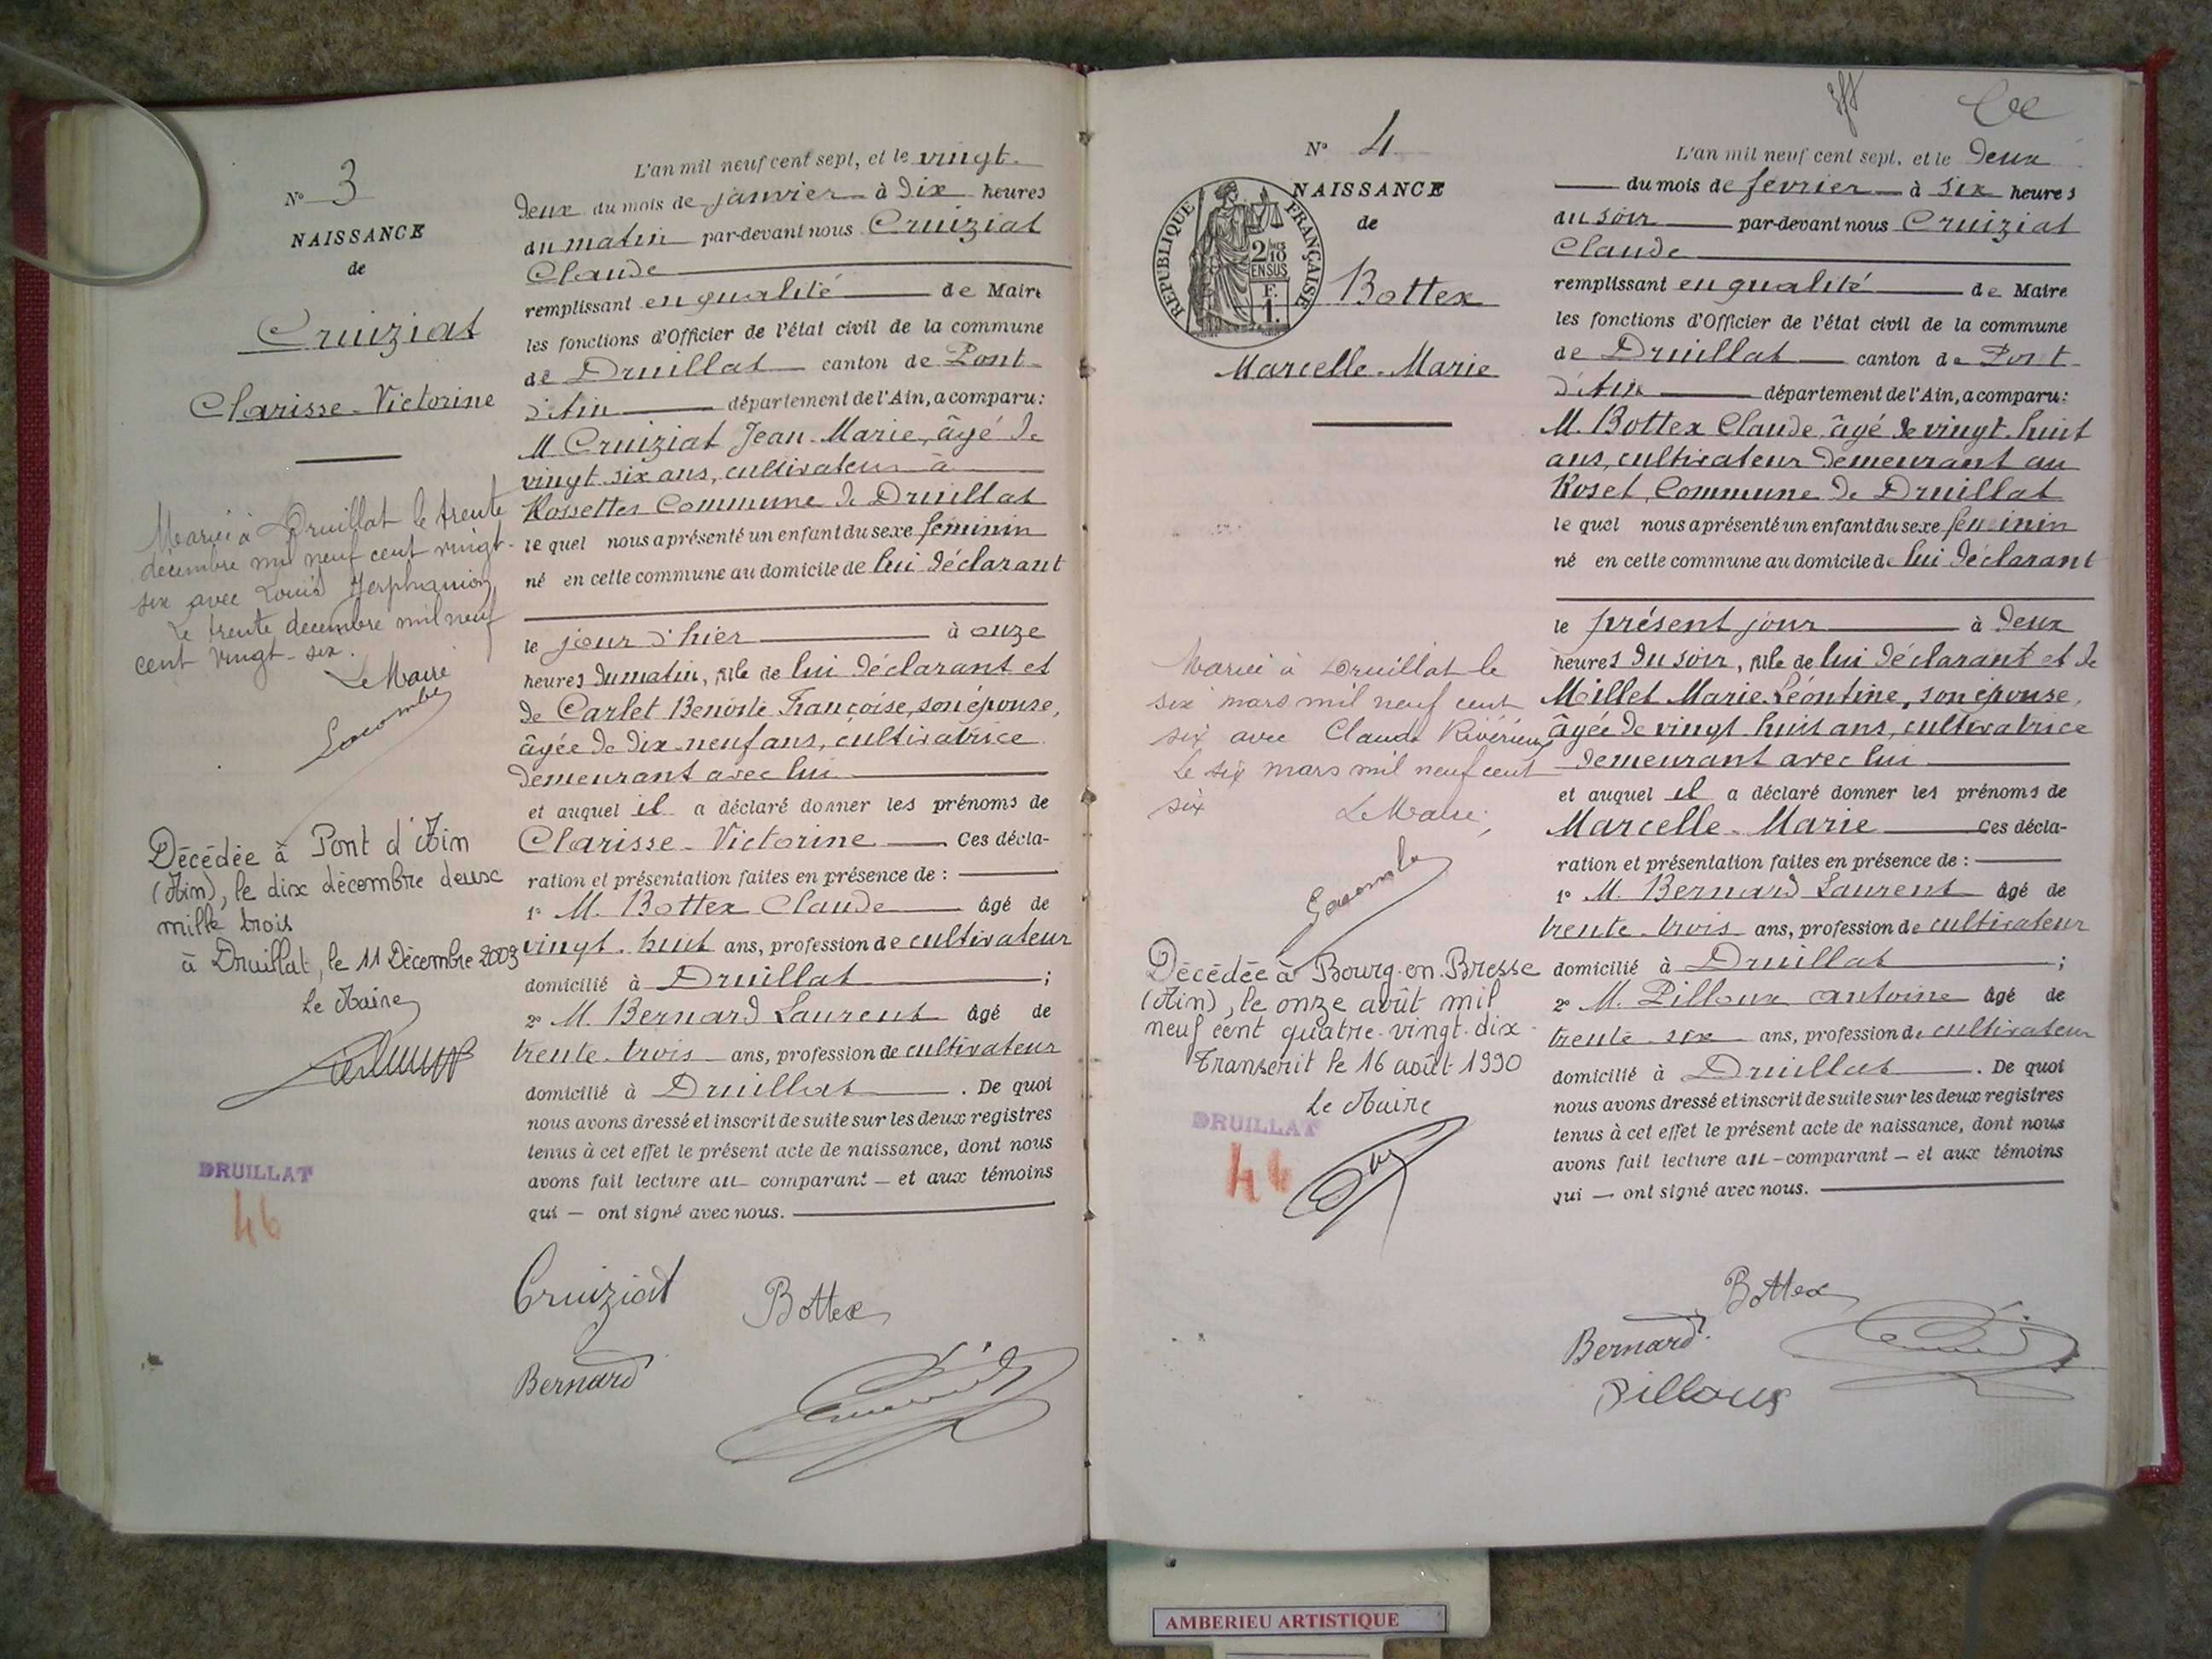 N° 3
NAISSANCE
de
Cruiziat
Clarisse-Victorine
Mariée à Druillat le trente
décembre mil neuf cent vingt-
six avec Louis Jerphanion
Le trente décembre mil neuf
cent vingt-six.
Le Maire
Lacombe
Décédée à Pont d'Ain
(Ain), le dix décembre deux
mille trois
à Druillat, le 11 Décembre 2003
Le Maire
DRUILLAT
46
L'an mil neuf cent sept, et le vingt-
deux du mois de janvier à dix heures
du matin par-devant nous Cruiziat
Claude
remplissant en qualité de Maire
les fonctions d'Officier de l'état civil de la commune
de Druillat canton de Pont-
d'Ain département de l'Ain, a comparu:
M. Cruiziat Jean-Marie, âgé de
vingt-six ans, cultivateur à
Rossettes Commune de Druillat
le quel nous a présenté un enfant du sexe féminin
né en cette commune au domicile de lui déclarant
le jour d'hier à onze
heures du matin, fille de lui déclarant et
de Carlet Benoite Françoise, son épouse,
âgée de dix-neuf ans, cultivatrice
demeurant avec lui
et auquel il a déclaré donner les prénoms de
Clarisse-Victorine Ces décla-
ration et présentation faites en présence de :
1° M. Bottex Claude âgé de
vingt-huit ans, profession de cultivateur
domicilié à Druillat ;
2° M. Bernard Laurent âgé de
trente-trois ans, profession de cultivateur
domicilié à Druillat . De quoi
nous avons dressé et inscrit de suite sur les deux registres
tenus à cet effet le présent acte de naissance, dont nous
avons fait lecture au comparant — et aux témoins
qui — ont signé avec nous.
Cruiziat Bottex
Bernard
N° 4
NAISSANCE
de
RÉPUBLIQUE FRANÇAISE
2/10
EN SUS
F.
1.
Bottex
Marcelle-Marie
Mariée à Druillat le
six mars mil neuf cent
six avec Claude
Le six mars mil neuf cent
six Le Maire,
Lacombe
Décédée à Bourg-en-Bresse
(Ain), le onze août mil
neuf cent quatre-vingt-dix-
Transcrit le 16 août 1990
Le Maire
DRUILLAT
44
L'an mil neuf cent sept, et le deux
du mois de fevrier à six heures
du soir par-devant nous Cruiziat
Claude
remplissant en qualité de Maire
les fonctions d'Officier de l'état civil de la commune
de Druillat canton de Pont-
d'Ain département de l'Ain, a comparu:
M. Bottex Claude, âgé de vingt-huit
ans, cultivateur demeurant au
Roset, Commune de Druillat
le quel nous a présenté un enfant du sexe feminin
né en cette commune au domicile de lui déclarant
le présent jour à deux
heures du soir, fille de lui déclarant et de
Millet Marie-Léontine, son épouse,
âgée de vingt-huit ans, cultivatrice
demeurant avec lui
et auquel il a déclaré donner les prénoms de
Marcelle-Marie Ces décla-
ration et présentation faites en présence de :
1° M. Bernard Laurent âgé de
trente-trois ans, profession de cultivateur
domicilié à Druillat ;
2° M. Pilloux antoine âgé de
trente-six ans, profession de cultivateur
domicilié à Druillat . De quoi
nous avons dressé et inscrit de suite sur les deux registres
tenus à cet effet le présent acte de naissance, dont nous
avons fait lecture au — comparant — et aux témoins
qui — ont signé avec nous.
Bottex
Bernard
Pilloux
AMBERIEU ARTISTIQUE